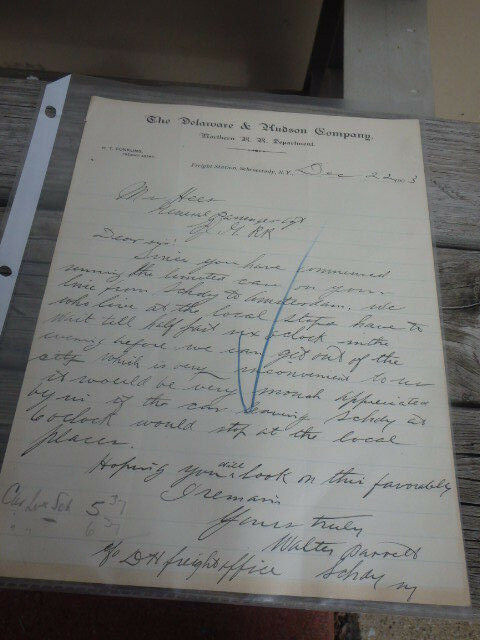 The Delaware & Hudson Company.
Northern R. R. Department.
FREIGHT AGENT.
Freight Station, Schenectady, N.Y., Dec 22 1903
Mr Hees
General Passenger Agt
RR
Dear sir:
Since you have commenced
running the limited cars on your
line from Schdy to Amsterdam. We
who live at the local stops have to
wait till half past six o'clock in the
evening before we can get out of the
city which is very inconvenient to us
it would be very much appreciated
by us if the car leaving Schdy at
6 oclock would stop at the local
places.
Hoping you will look on this favorably
I remain
Yours truly
Walter Barrett
c/o D H freight office Schdy NY
Car Lv Sch 5 37
" " 6 37